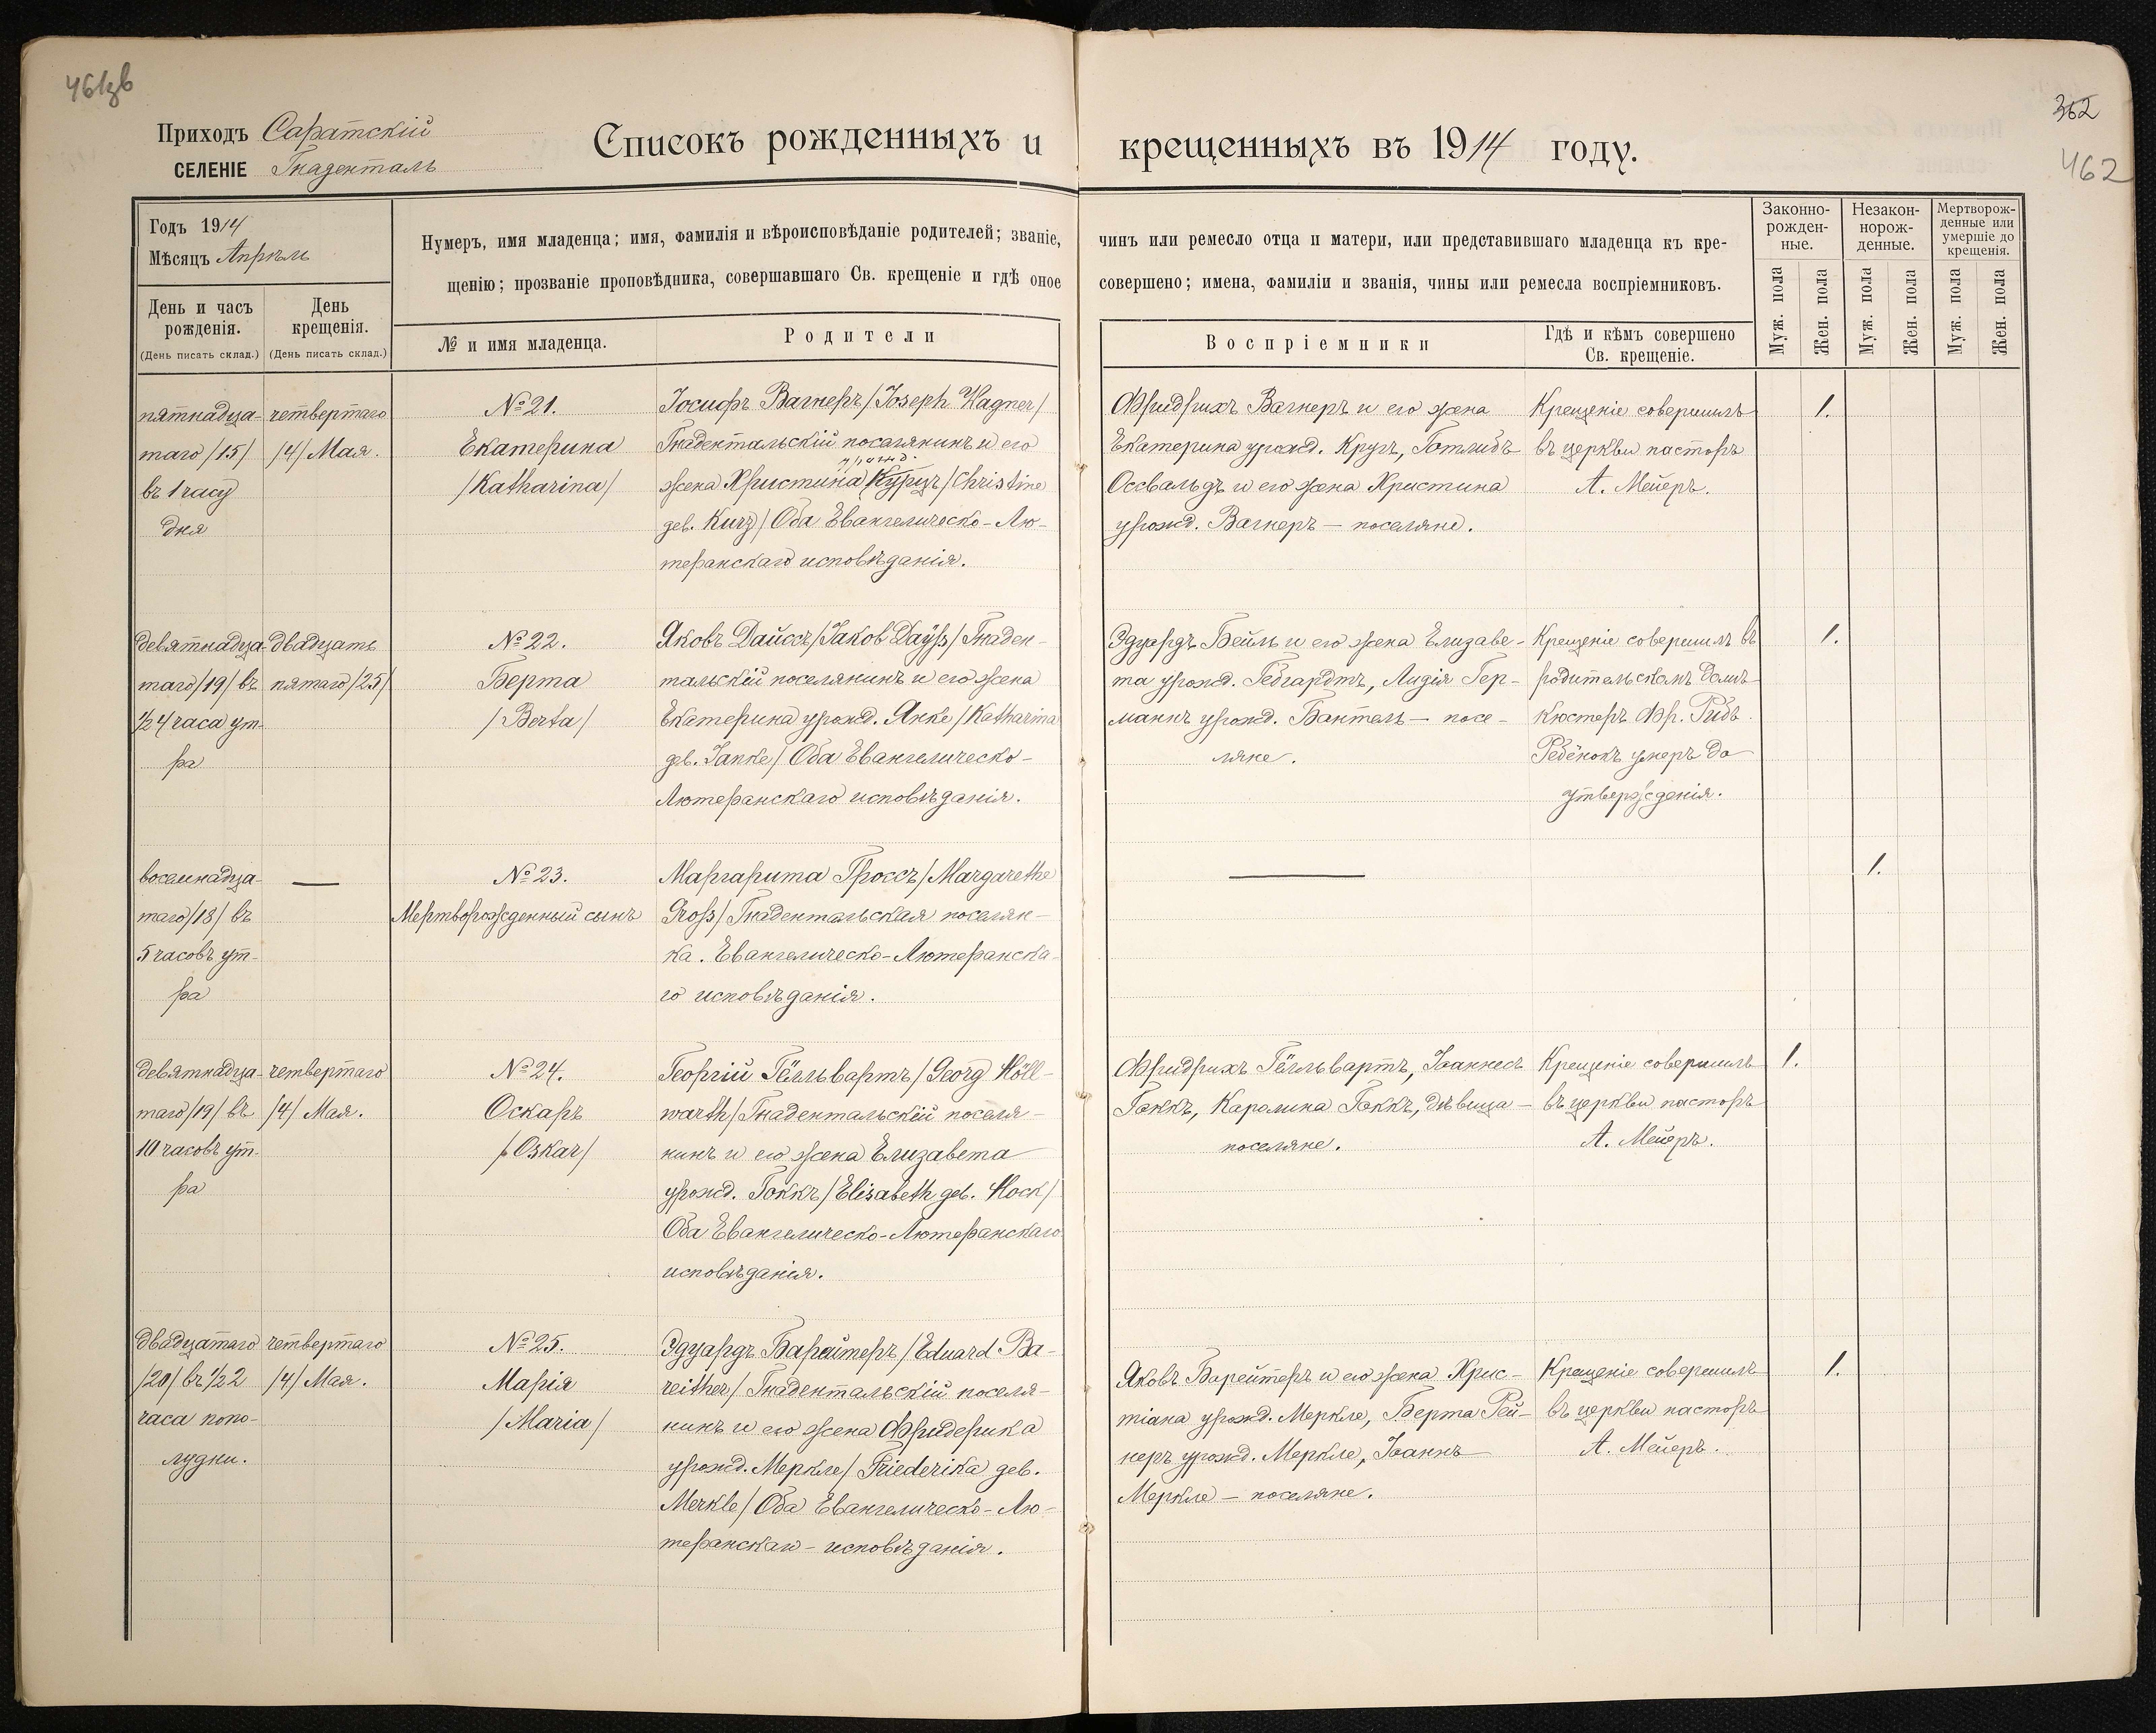 461зв
362
462
Приходъ Саратскій
СЕЛЕНІЕ Гнаденталь
Списокъ рожденныхъ и крещенныхъ въ 1914 году.
Годъ 1914
Мѣсяцъ Апрѣль
День и часъ рожденія.
(День писать склад.)
День крещенія.
(День писать склад.)
Нумеръ, имя младенца; имя, фамилія и вѣроисповѣданіе родителей; званіе, чинъ или ремесло отца и матери, или представившаго младенца къ кре-
щенію; прозваніе проповѣдника, совершавшаго Св. крещеніе и гдѣ оное совершено; имена, фамиліи и званія, чины или ремесла воспріемниковъ.
№ и имя младенца.
Родители
Воспріемники
Гдѣ и кѣмъ совершено
Св. крещеніе.
Законно-
рожден-
ные.
Незакон-
норож-
денные.
Мертворож-
денные или
умершіе до
крещенія.
Муж. пола
Жен. пола
Муж. пола
Жен. пола
Муж. пола
Жен. пола
пятнадца-
таго /15/
въ 1 часу
дня
четвертаго
/4/ Мая.
№ 21.
Екатерина
/Katharina/
Іосифъ Вагнеръ /Joseph Wagner/
Гнадентальскій поселянинъ и его
урожд.
жена Христина Курцъ /Christine
geb. Kurz/ Оба Евангелическо-Лю-
теранскаго исповѣданія.
Фридрихъ Вагнеръ и его жена
Екатерина урожд. Кругъ, Готлибъ
Оссвальдъ и его жена Христина
урожд. Вагнеръ — поселяне.
Крещеніе совершилъ
въ церкви пасторъ
А. Мейеръ.
1.
девятнадца-
таго /19/ въ
1/2 4 часа ут-
ра
двадцать
пятаго /25/
№ 22.
Берта
/Berta/
Яковъ Дайссъ /Jakob Dayß/ Гнаден-
тальскій поселянинъ и его жена
Екатерина урожд. Янке /Katharina
geb. Janke/ Оба Евангелическо-
Лютеранскаго исповѣданія.
Эдуардъ Бейль и его жена Елизаве-
та урожд. Гебгардтъ, Лидія Гер-
маннъ урожд. Бантель — посе-
ляне.
Крещеніе совершилъ въ
родительскомъ домѣ
кюстеръ Фр. Рибъ.
Ребёнокъ умеръ до
утвержденія.
1.
восемнадца-
таго /18/ въ
5 часовъ ут-
ра
—
№ 23.
Мертворожденный сынъ
Маргарита Гроссъ /Margarethe
Groß/ Гнадентальская поселян-
ка. Евангелическо-Лютеранска-
го исповѣданія.
—
1.
девятнадца-
таго /19/ въ
10 часовъ ут-
ра
четвертаго
/4/ Мая.
№ 24.
Оскаръ
/Oskar/
Георгій Гёлльвартъ /Georg Höll-
warth/ Гнадентальскій поселя-
нинъ и его жена Елизавета
урожд. Гоккъ /Elisabeth geb. Hock/
Оба Евангелическо-Лютеранскаго
исповѣданія.
Фридрихъ Гёлльвартъ, Іоаннесъ
Гоккъ, Каролина Гоккъ, дѣвица —
поселяне.
Крещеніе совершилъ
въ церкви пасторъ
А. Мейеръ.
1.
двадцатаго
/20/ въ 1/2 2
часа попо-
лудни.
четвертаго
/4/ Мая.
№ 25.
Марія
/Maria/
Эдуардъ Барейтеръ /Eduard Ba-
reither/ Гнадентальскій поселя-
нинъ и его жена Фридерика
урожд. Меркле /Friederika geb.
Merkle/ Оба Евангелическо-Лю-
теранскаго-исповѣданія.
Яковъ Барейтеръ и его жена Хрис-
тіана урожд. Меркле, Берта Рей-
неръ урожд. Меркле, Іоаннъ
Меркле — поселяне.
Крещеніе совершилъ
въ церкви пасторъ
А. Мейеръ.
1.